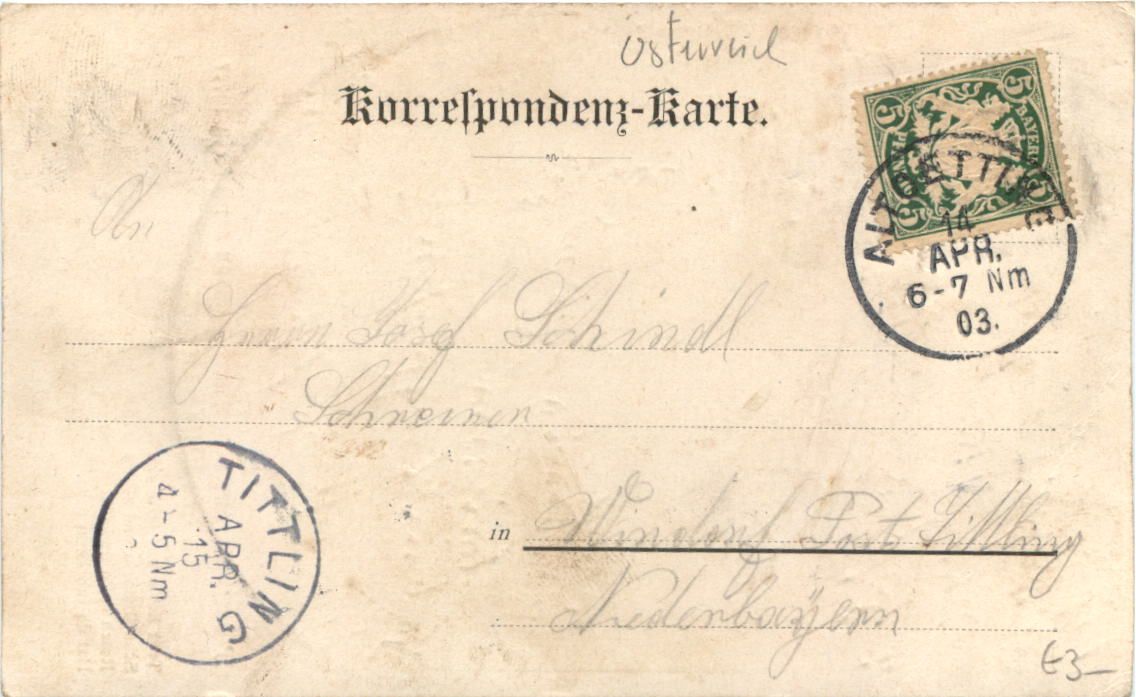 Österreich
Korrespondenz-Karte.
5 5
BAYERN
5 5
ALTOETTING
14
APR.
6-7 Nm
03.
An
Herrn Josef Schindl
Schreiner
in Windorf Post Tittling
Niederbayern
TITTLING
APR.
15
4-5 Nm
€3–